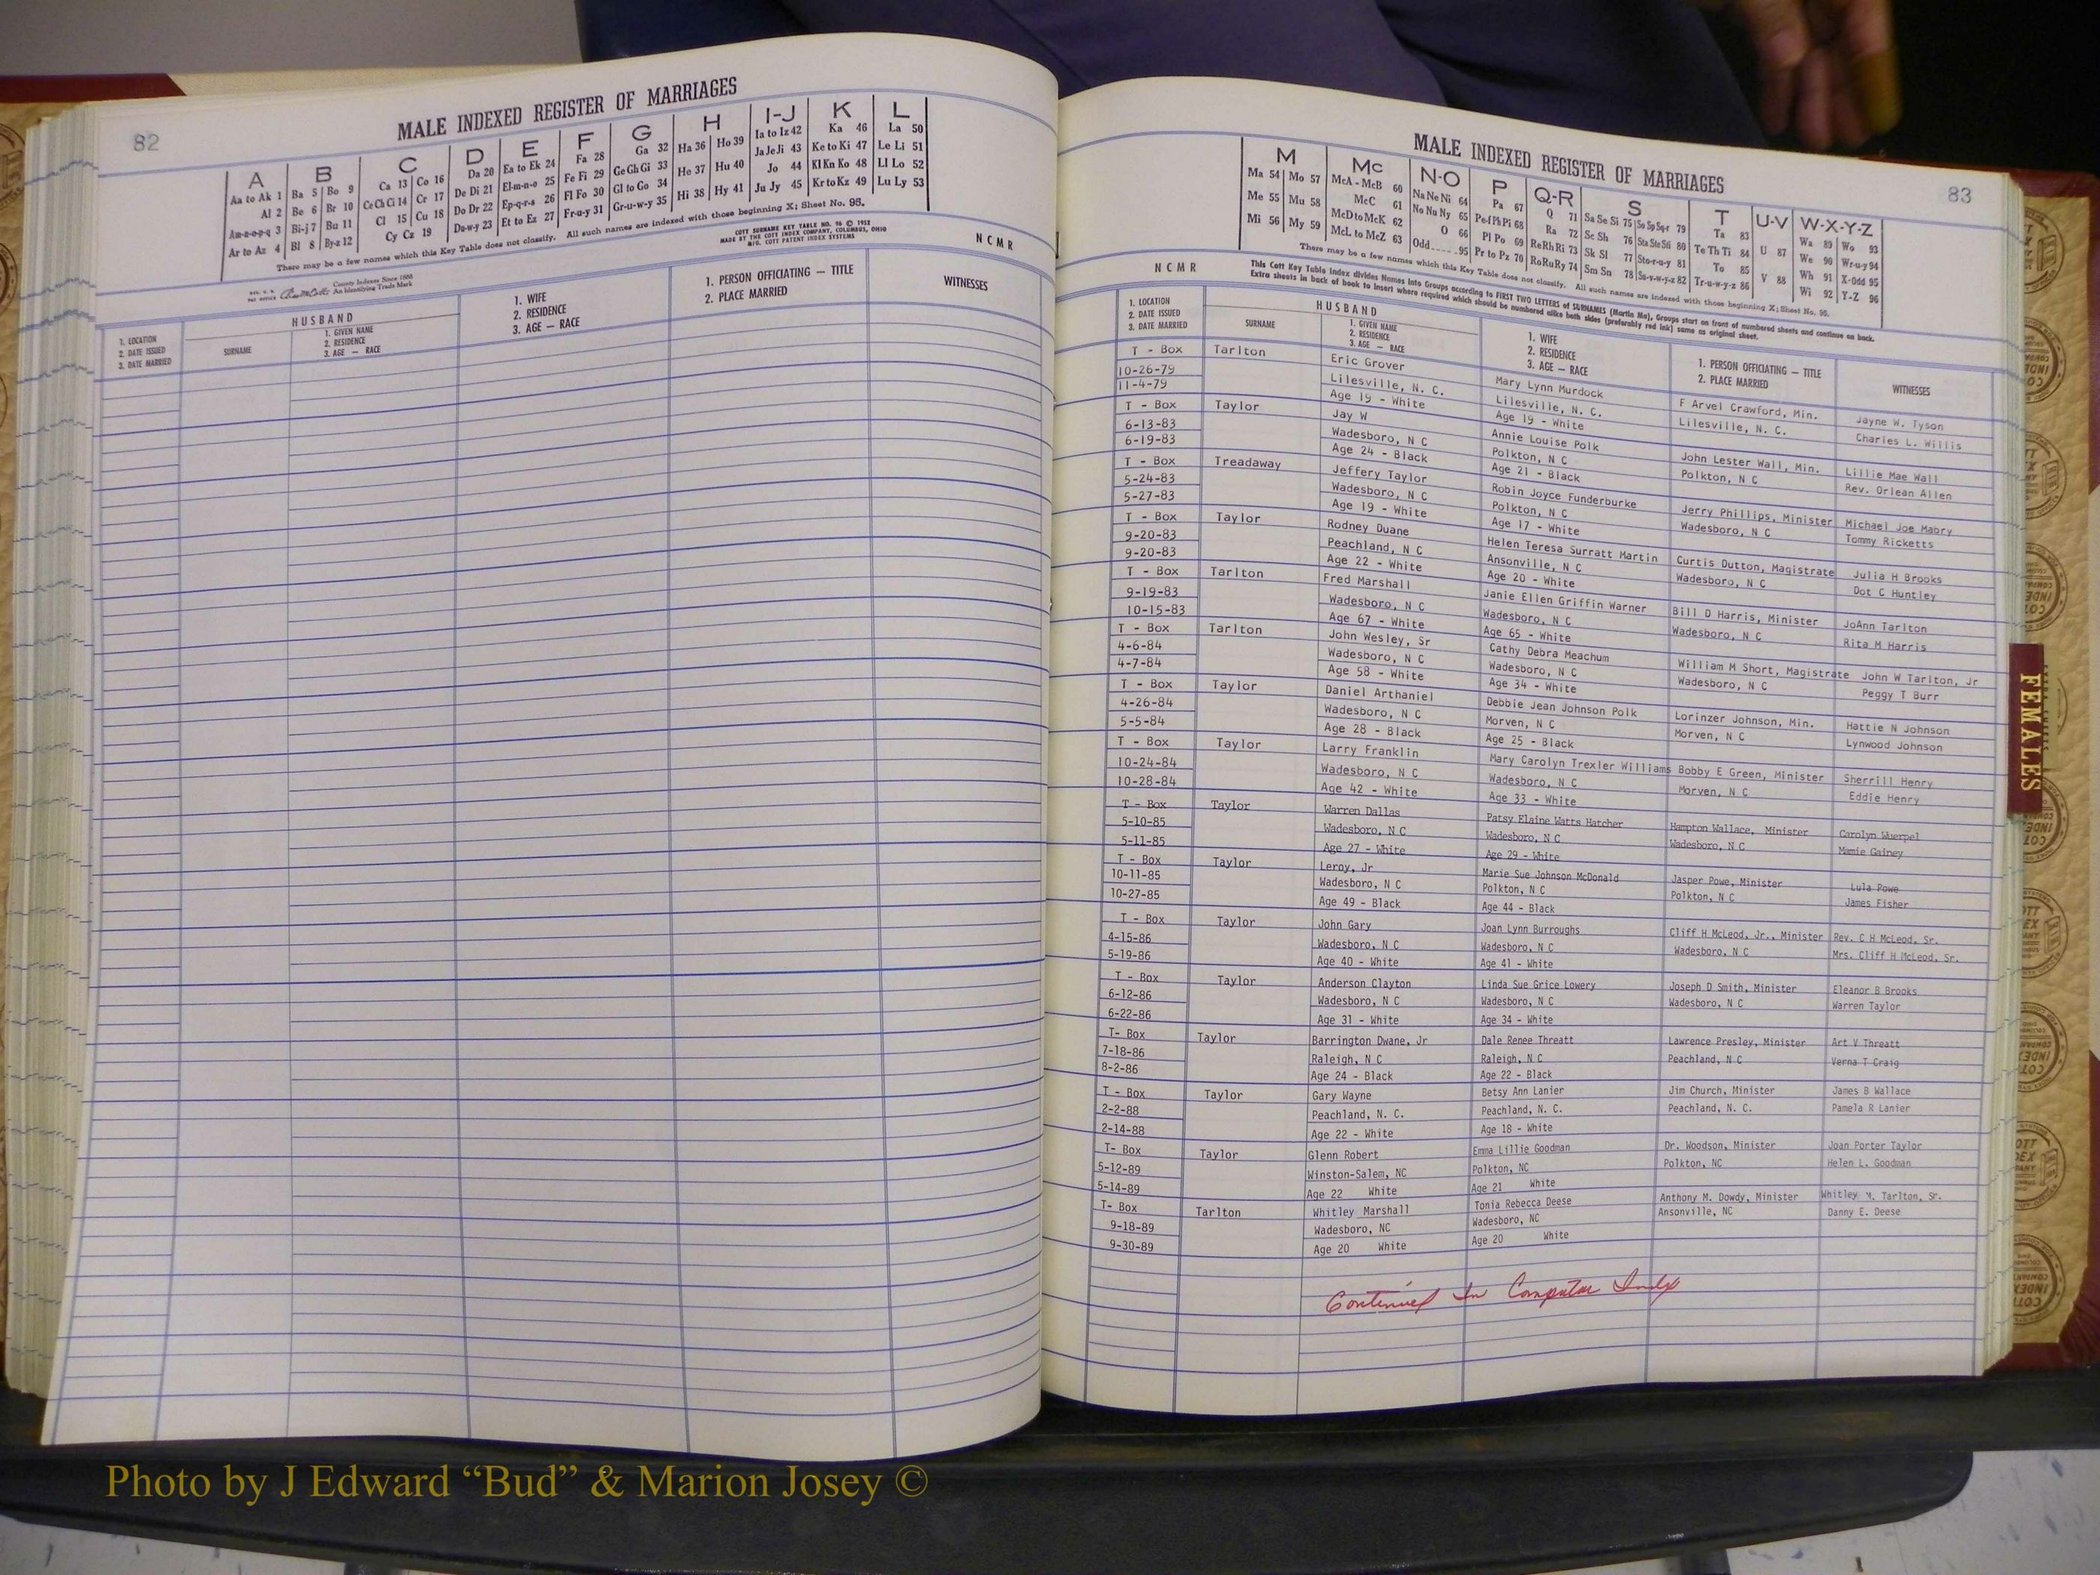 82
MALE INDEXED REGISTER OF MARRIAGES
A B C D E F G H I-J K L
Aa to Ak 1 Ba 5 Bo 9 Ca 13 Co 16 Da 20 Ea to Ek 24 Fa 28 Ga 32 Ha 36 Ho 39 Ia to Iz 42 Ka 46 La 50
Al 2 Be 6 Br 10 Ce Ch Ci 14 Cr 17 De Di 21 El-m-n-o 25 Fe Fi 29 Ge Gh Gi 33 He 37 Hu 40 Ja Je Ji 43 Ke to Ki 47 Le Li 51
Am-n-o-p-q 3 Bi-j 7 Bu 11 Cl 15 Cu 18 Do Dr 22 Ep-q-r-s 26 Fl Fo 30 Gl to Go 34 Hi 38 Hy 41 Jo 44 Kl Kn Ko 48 Ll Lo 52
Ar to Az 4 Bl 8 By-z 12 Cy Cz 19 Du-w-y 23 Et to Ez 27 Fr-u-y 31 Gr-u-w-y 35 Ju Jy 45 Kr to Kz 49 Lu Ly 53
There may be a few names which this Key Table does not classify. All such names are indexed with those beginning X; Sheet No. 95.
COTT SURNAME KEY TABLE NO. 96 © 1952
MADE BY THE COTT INDEX COMPANY, COLUMBUS, OHIO
MFG. COTT PATENT INDEX SYSTEMS
N C M R
County Indexes Since 1888
An Identifying Trade Mark
1. LOCATION
2. DATE ISSUED
3. DATE MARRIED
HUSBAND
SURNAME
1. GIVEN NAME
2. RESIDENCE
3. AGE — RACE
1. WIFE
2. RESIDENCE
3. AGE — RACE
1. PERSON OFFICIATING — TITLE
2. PLACE MARRIED
WITNESSES
83
MALE INDEXED REGISTER OF MARRIAGES
M Mc N-O P Q-R S T U-V W-X-Y-Z
Ma 54 Mo 57 McA - McB 60 Na Ne Ni 64 Pa 67 Q 71 Sa Se Si 75 So Sp Sq-r 79 Ta 83 U 87 Wa 89 Wo 93
Me 55 Mu 58 McC 61 No Nu Ny 65 Pe-f Ph Pi 68 Ra 72 Sc Sh 76 Sta Ste Sti 80 Te Th Ti 84 V 88 We 90 Wr-u-y 94
Mi 56 My 59 McD to McK 62 O 66 Pl Po 69 Re Rh Ri 73 Sk Sl 77 Sto-r-u-y 81 To 85 Wh 91 X-Odd 95
McL to McZ 63 Odd 95 Pr to Pz 70 Ro Ru Ry 74 Sm Sn 78 Su-v-w-y-z 82 Tr-u-w-y-z 86 Wi 92 Y-Z 96
There may be a few names which this Key Table does not classify. All such names are indexed with those beginning X; Sheet No. 95.
N C M R
This Cott Key Table Index divides Names into Groups according to FIRST TWO LETTERS of SURNAMES (Martin Ma), Groups start on front of numbered sheets and continue on back.
Extra sheets in back of book to insert where required which should be numbered alike both sides (preferably red ink) same as original sheet.
1. LOCATION
2. DATE ISSUED
3. DATE MARRIED
HUSBAND
SURNAME
1. GIVEN NAME
2. RESIDENCE
3. AGE — RACE
1. WIFE
2. RESIDENCE
3. AGE — RACE
1. PERSON OFFICIATING — TITLE
2. PLACE MARRIED
WITNESSES
T - Box Tarlton Eric Grover Mary Lynn Murdock F Arvel Crawford, Min. Jayne W. Tyson
10-26-79 Lilesville, N. C. Lilesville, N. C. Lilesville, N. C. Charles L. Willis
11-4-79 Age 19 - White Age 19 - White
T - Box Taylor Jay W Annie Louise Polk John Lester Wall, Min. Lillie Mae Wall
6-13-83 Wadesboro, N C Polkton, N C Polkton, N C Rev. Orlean Allen
6-19-83 Age 24 - Black Age 21 - Black
T - Box Treadaway Jeffery Taylor Robin Joyce Funderburke Jerry Phillips, Minister Michael Joe Mabry
5-24-83 Wadesboro, N C Polkton, N C Wadesboro, N C Tommy Ricketts
5-27-83 Age 19 - White Age 17 - White
T - Box Taylor Rodney Duane Helen Teresa Surratt Martin Curtis Dutton, Magistrate Julia H Brooks
9-20-83 Peachland, N C Ansonville, N C Wadesboro, N C Dot C Huntley
9-20-83 Age 22 - White Age 20 - White
T - Box Tarlton Fred Marshall Janie Ellen Griffin Warner Bill D Harris, Minister JoAnn Tarlton
9-19-83 Wadesboro, N C Wadesboro, N C Wadesboro, N C Rita M Harris
10-15-83 Age 67 - White Age 65 - White
T - Box Tarlton John Wesley, Sr Cathy Debra Meachum William M Short, Magistrate John W Tarlton, Jr
4-6-84 Wadesboro, N C Wadesboro, N C Wadesboro, N C Peggy T Burr
4-7-84 Age 58 - White Age 34 - White
T - Box Taylor Daniel Arthaniel Debbie Jean Johnson Polk Lorinzer Johnson, Min. Hattie N Johnson
4-26-84 Wadesboro, N C Morven, N C Morven, N C Lynwood Johnson
5-5-84 Age 28 - Black Age 25 - Black
T - Box Taylor Larry Franklin Mary Carolyn Trexler Williams Bobby E Green, Minister Sherrill Henry
10-24-84 Wadesboro, N C Wadesboro, N C Morven, N C Eddie Henry
10-28-84 Age 42 - White Age 33 - White
T - Box Taylor Warren Dallas Patsy Elaine Watts Hatcher Hampton Wallace, Minister Carolyn Wuerpel
5-10-85 Wadesboro, N C Wadesboro, N C Wadesboro, N C Mamie Gainey
5-11-85 Age 27 - White Age 29 - White
T - Box Taylor Leroy, Jr Marie Sue Johnson McDonald Jasper Powe, Minister Lula Powe
10-11-85 Wadesboro, N C Polkton, N C Polkton, N C James Fisher
10-27-85 Age 49 - Black Age 44 - Black
T - Box Taylor John Gary Joan Lynn Burroughs Cliff H McLeod, Jr., Minister Rev. C H McLeod, Sr.
4-15-86 Wadesboro, N C Wadesboro, N C Wadesboro, N C Mrs. Cliff H McLeod, Sr.
5-19-86 Age 40 - White Age 41 - White
T - Box Taylor Anderson Clayton Linda Sue Grice Lowery Joseph D Smith, Minister Eleanor B Brooks
6-12-86 Wadesboro, N C Wadesboro, N C Wadesboro, N C Warren Taylor
6-22-86 Age 31 - White Age 34 - White
T- Box Taylor Barrington Dwane, Jr Dale Renee Threatt Lawrence Presley, Minister Art V Threatt
7-18-86 Raleigh, N C Raleigh, N C Peachland, N C Verna T Craig
8-2-86 Age 24 - Black Age 22 - Black
T - Box Taylor Gary Wayne Betsy Ann Lanier Jim Church, Minister James B Wallace
2-2-88 Peachland, N. C. Peachland, N. C. Peachland, N. C. Pamela R Lanier
2-14-88 Age 22 - White Age 18 - White
T- Box Taylor Glenn Robert Emma Lillie Goodman Dr. Woodson, Minister Joan Porter Taylor
5-12-89 Winston-Salem, NC Polkton, NC Polkton, NC Helen L. Goodman
5-14-89 Age 22 White Age 21 White
T- Box Tarlton Whitley Marshall Tonia Rebecca Deese Anthony M. Dowdy, Minister Whitley M. Tarlton, Sr.
9-18-89 Wadesboro, NC Wadesboro, NC Ansonville, NC Danny E. Deese
9-30-89 Age 20 White Age 20 White
Continued In Computer Index
FEMALES
Photo by J Edward “Bud” & Marion Josey ©